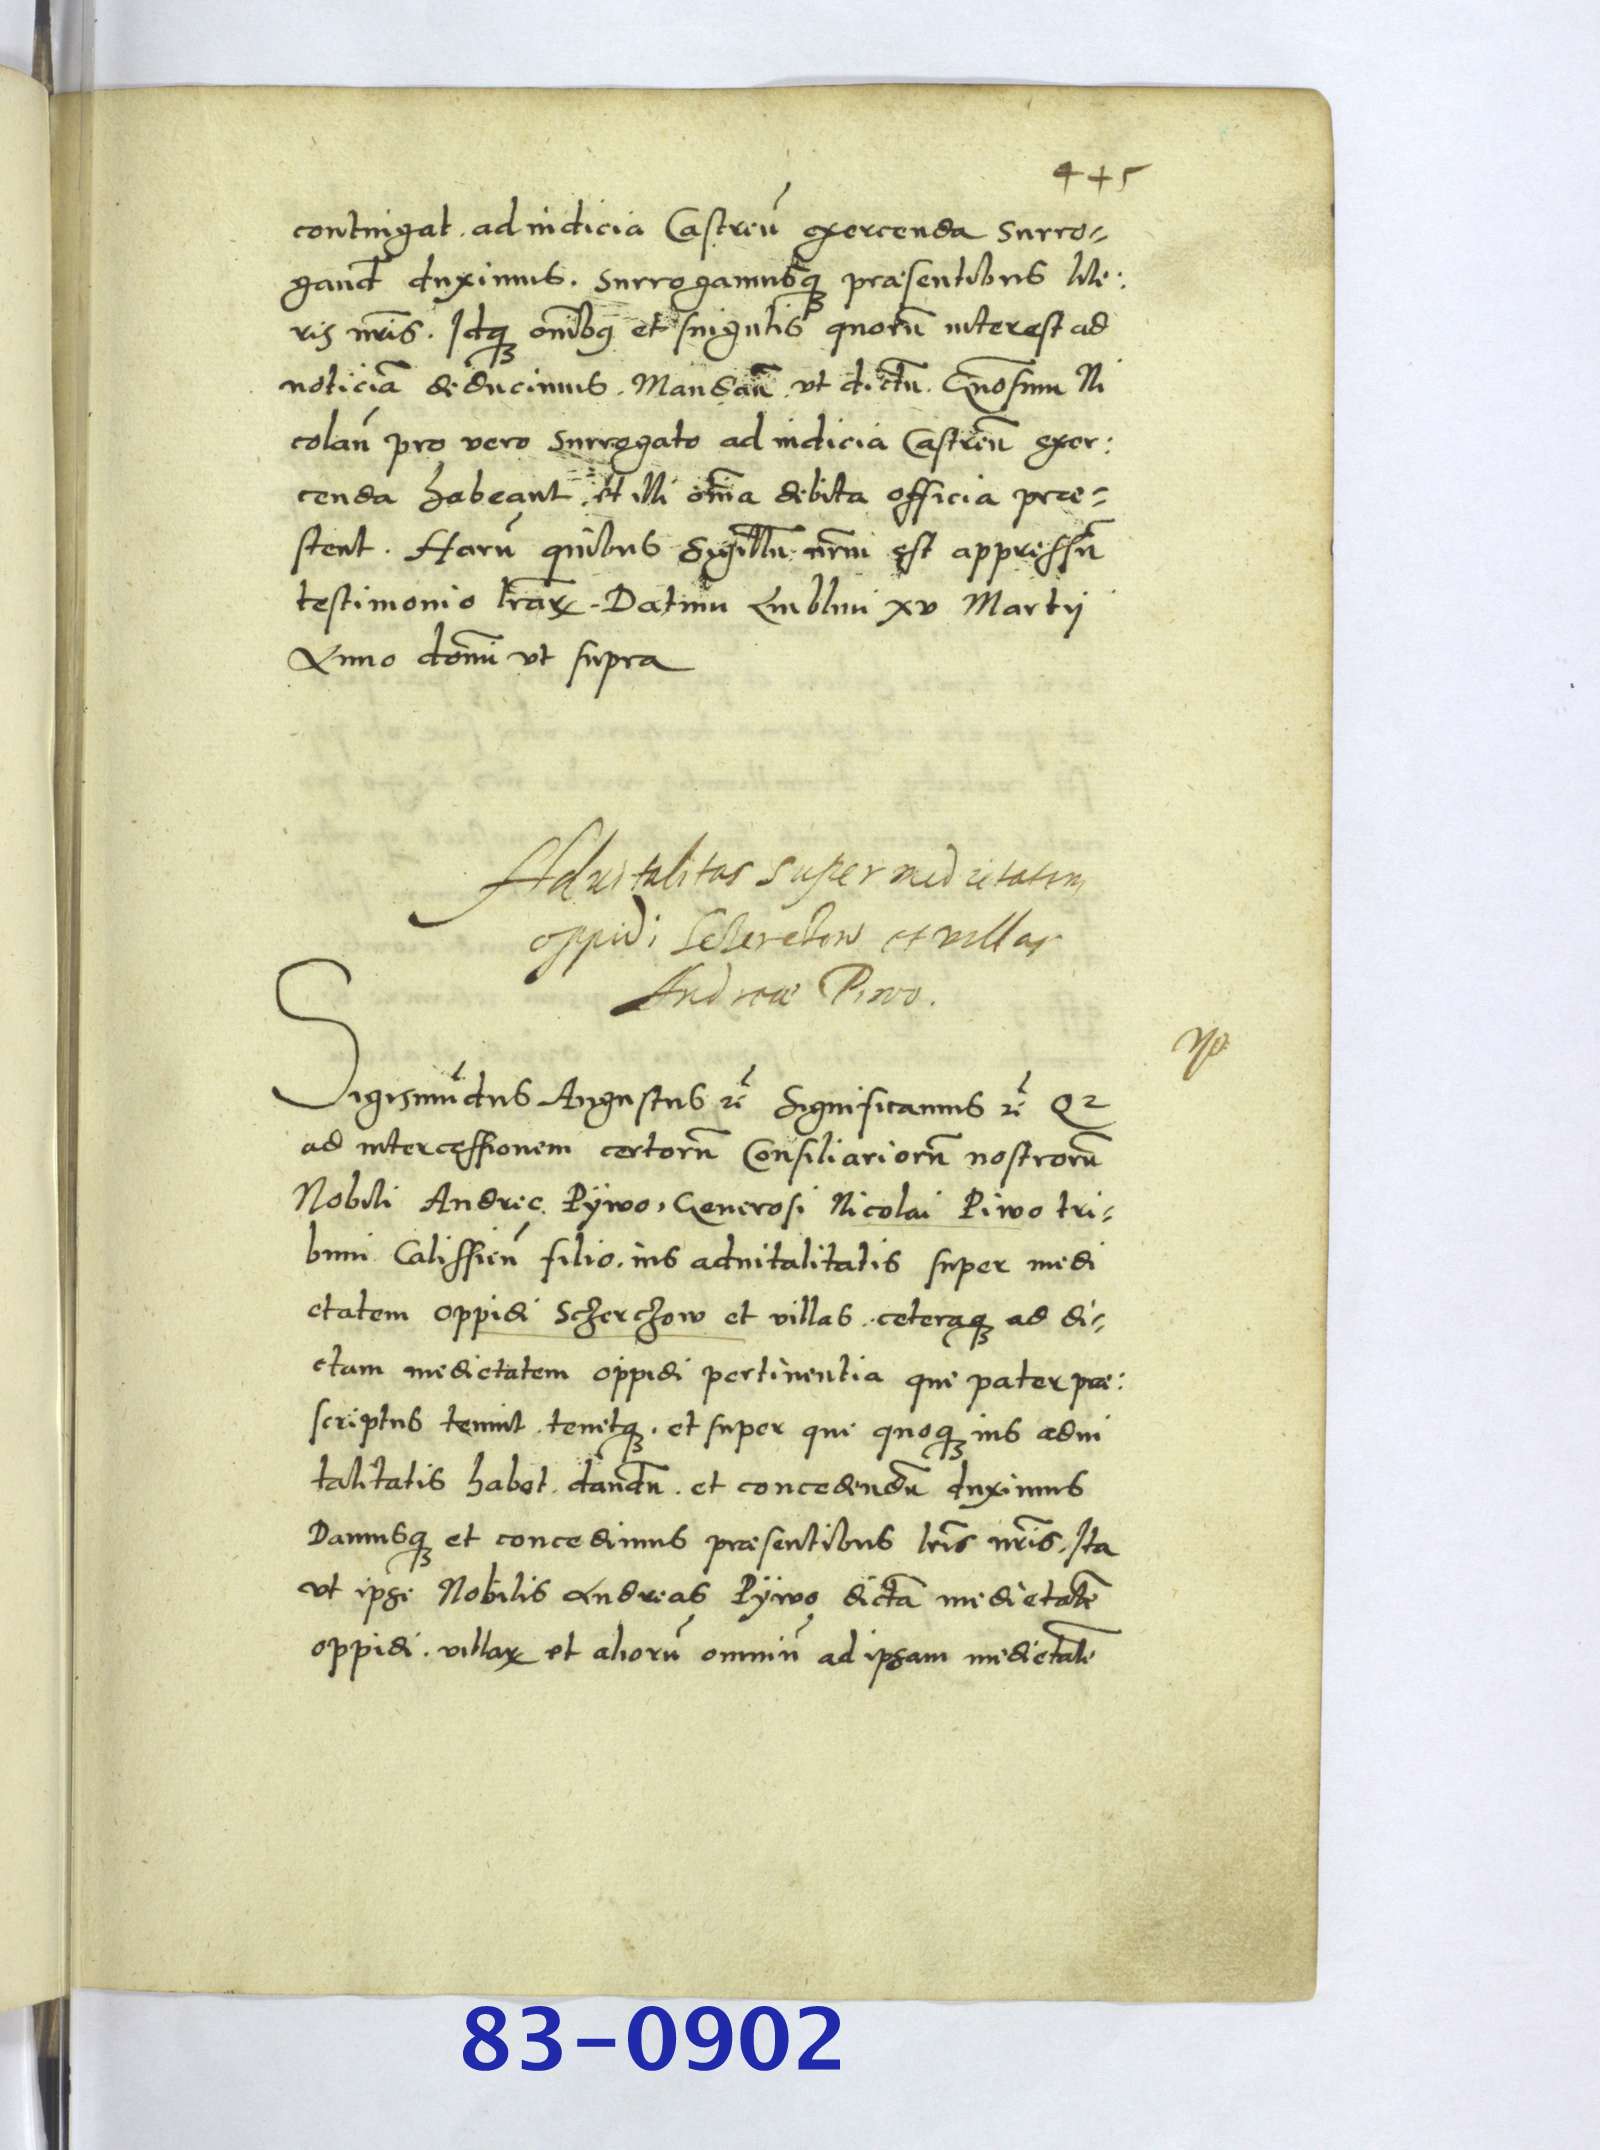 445
contingat. ad iudicia Castreń exercenda Surro=
gand̄ duximus. Surrogamusq₃ præsentibus lite:
ris nr̄is. Idq₃ om̄ibq et singulis quorū interest ad
noticiā deducimus. Mandań. vt dictū. Gnosinu Ni
colaū pro vero Surrogato ad iudicia Castreń exer:
cenda habeant. et illi om̄ia debita officia præ=
stent. Harū quibus Sigillū nr̄m est appressū
testimonio lr̄arꝝ. Datum Lublini xv Martij
Anno domī vt supra
Aduitalitas super medietatem
oppidi et villas
Andreæ Piwo.
Sigismūdus Augustus rē Significamus rē Q2
ad intercessionem certorū Consiliariorū nostrorū
Nobili Andreę Pÿwo, Generosi Nicolai Piwo tri=
buni Calissień filio. ius aduitalitatis super medi
etatem oppidi Sczerczow et villas. ceteraq₃ ad di=
ctam medietatem oppidi pertinentia que pater præ:
scriptus tenuit. tenetq₃. et super que quoq₃ ius adui
talitatis habet. dandū. et concedendū duximus
Damusq₃ et concedimus præsentibus lr̄is nr̄is. Ita
vt ipse Nobilis Andreas Pÿwo dictā medietatē
oppidi. villarꝝ et aliorū omniū ad ipsam medietatē
83-0902